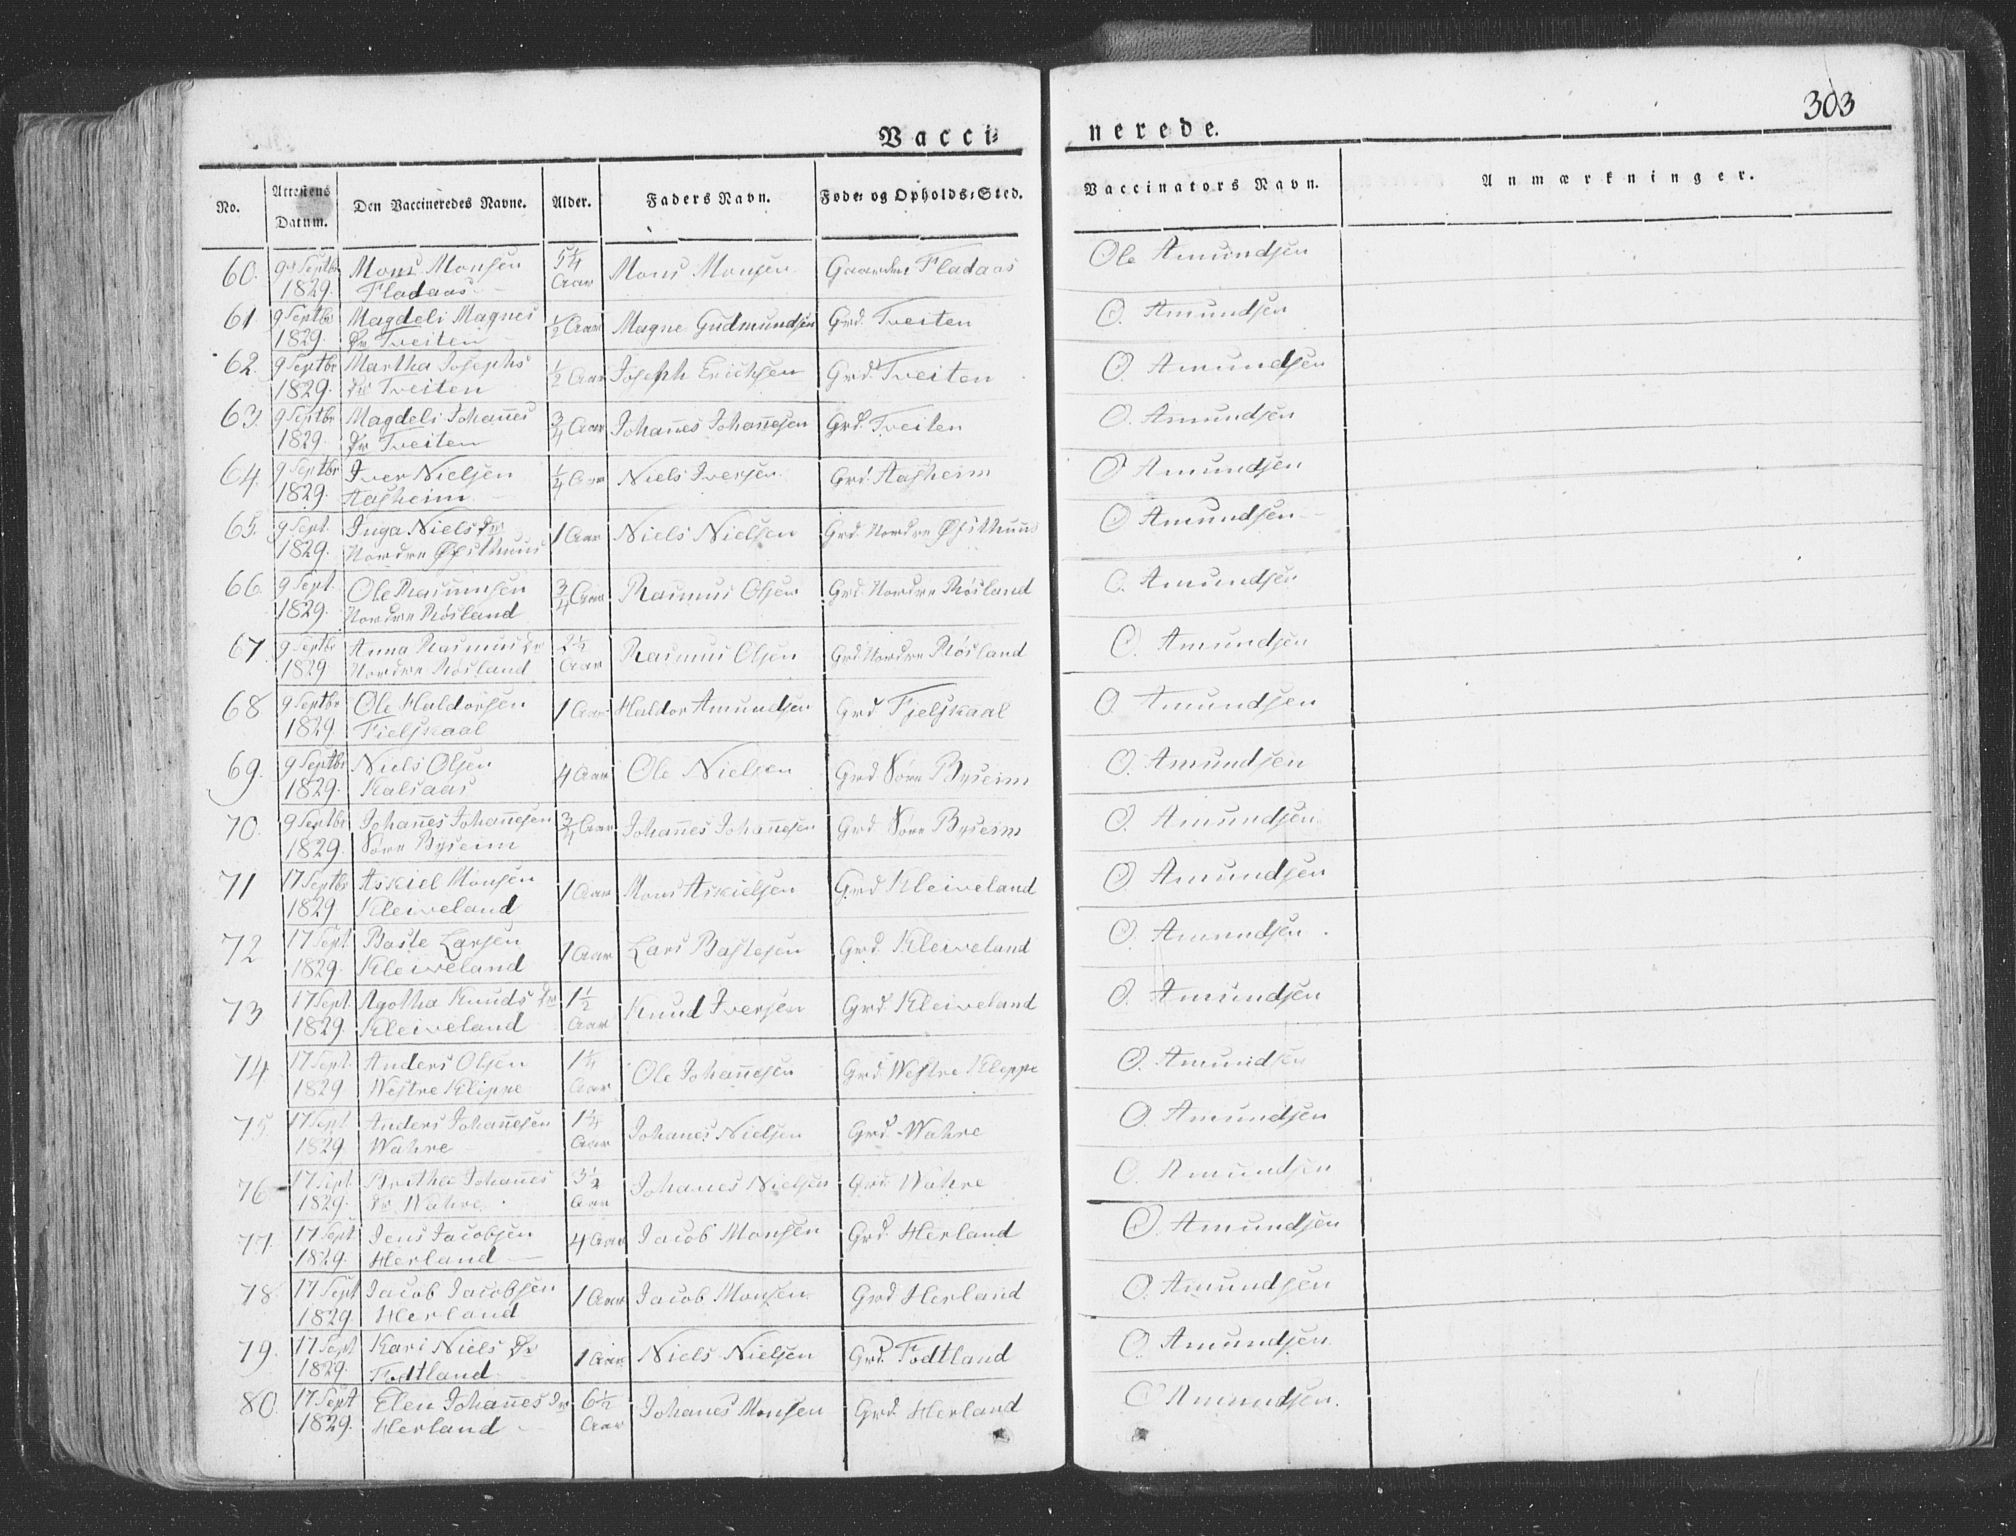 303
Vacci=nerede.
No. Attestens Datum. Den Vaccineredes Navne. Alder. Faders Navn. Føde= og Opholds=Sted. Vaccinators Navn. Anmærkninger.
60. 9de Septbr 1829. Mons Monsen Fladaas 5 1/4 Aar Mons Monsen Gaarden Fladaas Ole Amundsen
61. 9 Septbr 1829. Magdeli Magnes Dr Tveiten 1/2 Aar Magne Gudmundsen Grd. Tveiten O. Amundsen
62. 9 Septbr 1829. Martha Josephs Dr Tveiten 1/2 Aar Joseph Erichsen Grd Tveiten O. Amundsen
63. 9 Septbr 1829. Magdeli Johan̄es Dr Tveiten 3/4 Aar Johanes Johan̄esen Grd. Tveiten O. Amundsen
64. 9 Septbr 1829. Iver Nielsen Aasheim 1/4 Aar Niels Iversen Grd. Aasheim O Amundsen
65. 9 Sept. 1829. Inga Niels Dr Nordre Øfsthuus 1 Aar Niels Nielsen Grd. Nordre Øfsthuus O Amundsen
66. 9 Sept. 1829. Ole Rasmusen Nordre Røsland 3/4 Aar Rasmus Olsen Grd. Nordre Røsland O. Amundsen
67. 9 Septbr 1829 Anna Rasmus Dr Nordre Røsland 2 1/4 Aar Rasmus Olsen Grd Nordre Røsland O. Amundsen
68 9 Septbr 1829. Ole Haldorsen Fielskaal 1 Aar Haldor Amundsen Grd Fjelskaal O. Amundsen
69. 9 Septbr 1829. Niels Olsen Kalsaas 4 Aar Ole Nielsen Grd Søre Byseim O. Amundsen
70. 9 Septbr 1829. Johan̄es Johan̄esen Søre Byseim 3/4 Aar Johan̄es Johan̄esen Grd Søre Byseim O. Amundsen
71 17 Septbr 1829. Askiel Monsen Kleiveland 1 Aar Mons Askielsen Grd Kleiveland O Amundsen
72 17 Sept 1829. Baste Larsen Kleiveland 1 Aar Lars Bastesen Grd. Kleiveland O. Amundsen
73 17 Sept. 1829 Agotha Knuds Dr Kleiveland 1 1/2 Aar Knud Iversen Grd Kleiveland O. Amundsen
74 17 Sept. 1829 Anders Olsen Westre Kleppe 1 1/4 Aar Ole Johan̄esen Grd Westre Kleppe O. Amundsen
75 17 Sept 1829 Anders Johan̄esen Wahre 1 1/4 Aar Johanes Nielsen Grd. Wahre O. Amundsen
76 17 Sept 1829. Britha Johanes Dr Wahre 3 1/2 Aar Johanes Nielsen Grd. Wahre O. Amundsen
77. 17 Sept 1829. Jens Jacobsen Herland 4 Aar Jacob Monsen Grd. Herland O. Amundsen
78. 17 Sept 1829. Jacob Jacobsen Herland 1 Aar Jacob Monsen Grd Herland O. Amundsen
79. 17 Sept 1829. Kari Niels Dr Fodtland 1 Aar Niels Nielsen Grd. Fodtland O. Amundsen
80. 17 Sept 1829. Elen Johan̄es Dr Herland 6 1/2 Aar Johanes Monsen Grd. Herland O Amundsen.